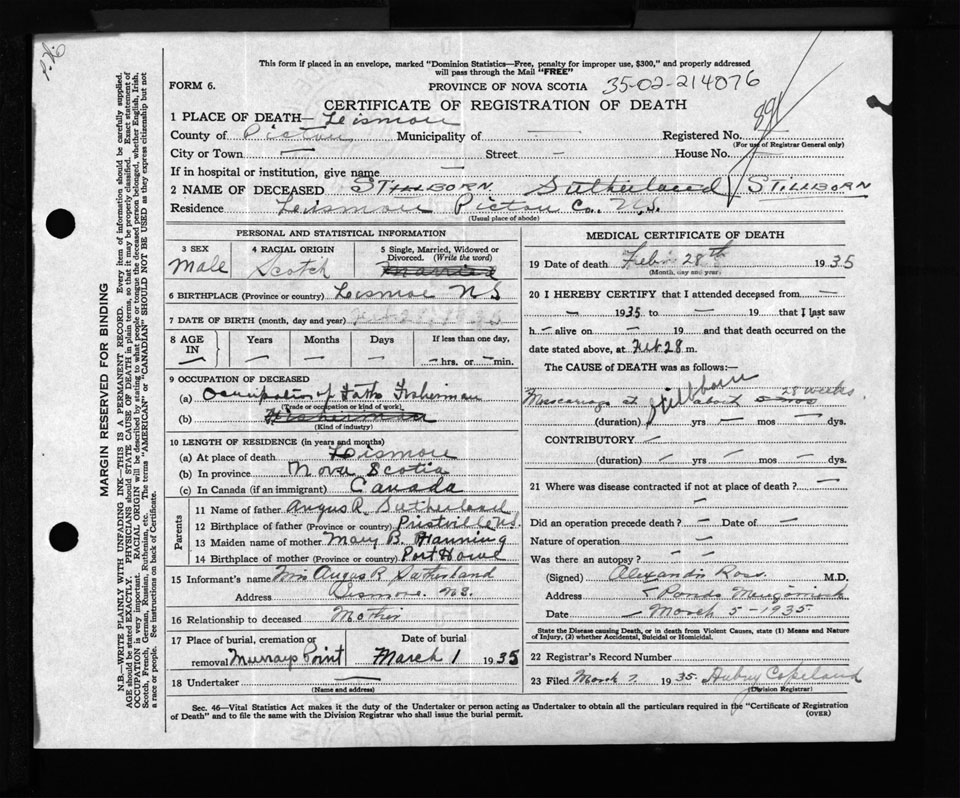 This form if placed in an envelope, marked "Dominion Statistics—Free, penalty for improper use, $300," and properly addressed
will pass through the Mail "FREE"
FORM 6.
PROVINCE OF NOVA SCOTIA 35-02-214076
CERTIFICATE OF REGISTRATION OF DEATH
1 PLACE OF DEATH— Lismore
County of Pictou Municipality of — Registered No. 891
(For use of Registrar General only)
City or Town — Street — House No.
If in hospital or institution, give name —
2 NAME OF DECEASED STILLBORN Sutherland STILLBORN
Residence Lismore Pictou Co. N.S.
(Usual place of abode)
PERSONAL AND STATISTICAL INFORMATION
3 SEX Male
4 RACIAL ORIGIN Scotch
5 Single, Married, Widowed or Divorced. (Write the word) Married
6 BIRTHPLACE (Province or country) Lismore NS
7 DATE OF BIRTH (month, day and year) Feb 28, 1935
8 AGE IN Years Months Days If less than one day,
— hrs. or — min.
9 OCCUPATION OF DECEASED
(a) Occupation of Fath Fisherman
(Trade or occupation or kind of work)
(b) Fisherman
(Kind of industry)
10 LENGTH OF RESIDENCE (in years and months)
(a) At place of death Lismore
(b) In province Nova Scotia
(c) In Canada (if an immigrant) Canada
Parents
11 Name of father Angus R. Sutherland
12 Birthplace of father (Province or country)
13 Maiden name of mother Mary B. Hanning
14 Birthplace of mother (Province or country) Port Howe
15 Informant's name Mrs Angus R Sutherland
Address Lismore. N.S.
16 Relationship to deceased Mother
17 Place of burial, cremation or Date of burial
removal Murrays Point March 1 1935
18 Undertaker —
(Name and address)
MEDICAL CERTIFICATE OF DEATH
19 Date of death Feb. 28th 1935
(Month, day and year)
20 I HEREBY CERTIFY that I attended deceased from —
— 1935 to — 19 that I last saw
h — alive on — 19 and that death occurred on
date stated above, at Feb 28 m.
The CAUSE of DEATH was as follows:—
Stillborn
Miscarriage at about 28 weeks
(duration) yrs — mos — dys.
CONTRIBUTORY —
(duration) — yrs — mos — dys.
21 Where was disease contracted if not at place of death? —
—
Did an operation precede death? — Date of —
Nature of operation —
Was there an autopsy? —
(Signed) Alexander Ross. M.D.
Address Ponds
Date March 5-1935
State the Disease causing Death, or in death from Violent Causes, state (1) Means and Nature
of Injury, (2) whether Accidental, Suicidal or Homicidal.
22 Registrar's Record Number
23 Filed March 7. 1935. Aubrey Copeland
(Division Registrar)
Sec. 46—Vital Statistics Act makes it the duty of the Undertaker or person acting as Undertaker to obtain all the particulars required in the "Certificate of Registration
of Death" and to file the same with the Division Registrar who shall issue the burial permit.
(OVER)
MARGIN RESERVED FOR BINDING
N.B.—WRITE PLAINLY WITH UNFADING INK—THIS IS A PERMANENT RECORD. Every item of information should be carefully supplied.
AGE should be stated EXACTLY. PHYSICIANS should STATE CAUSE OF DEATH in plain terms, so that it may be properly classified. Exact statement of
OCCUPATION is very important. RACIAL ORIGIN will be described by stating to what people or tongue the deceased person belonged, whether English, Irish,
Scotch, French, German, Russian, Ruthenian, etc. The terms "AMERICAN" or "CANADIAN" SHOULD NOT BE USED as they express citizenship but not
a race or people. See instructions on back of Certificate.